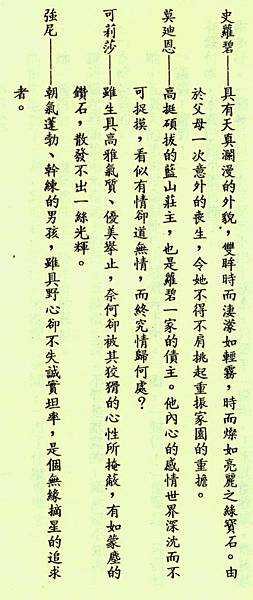 史蘿碧——具有天真瀾漫的外貌，雙眸時而淒濛如輕霧，時而燦如亮麗之綠寶石。由
於父母一次意外的喪生，令她不得不肩挑起重振家園的重擔。
莫迪恩——高挺碩拔的藍山莊主，也是蘿碧一家的債主。他內心的感情世界深沈而不
可捉摸，看似有情卻道無情，而終究情歸何處？
可莉莎——雖生具高雅氣質、優美舉止，奈何卻被其狡猾的心性所掩蔽，有如蒙塵的
鑽石，散發不出一絲光輝。
強尼——朝氣蓬勃、幹練的男孩，雖具野心卻不失誠實坦率，是個無緣摘星的追求
者。